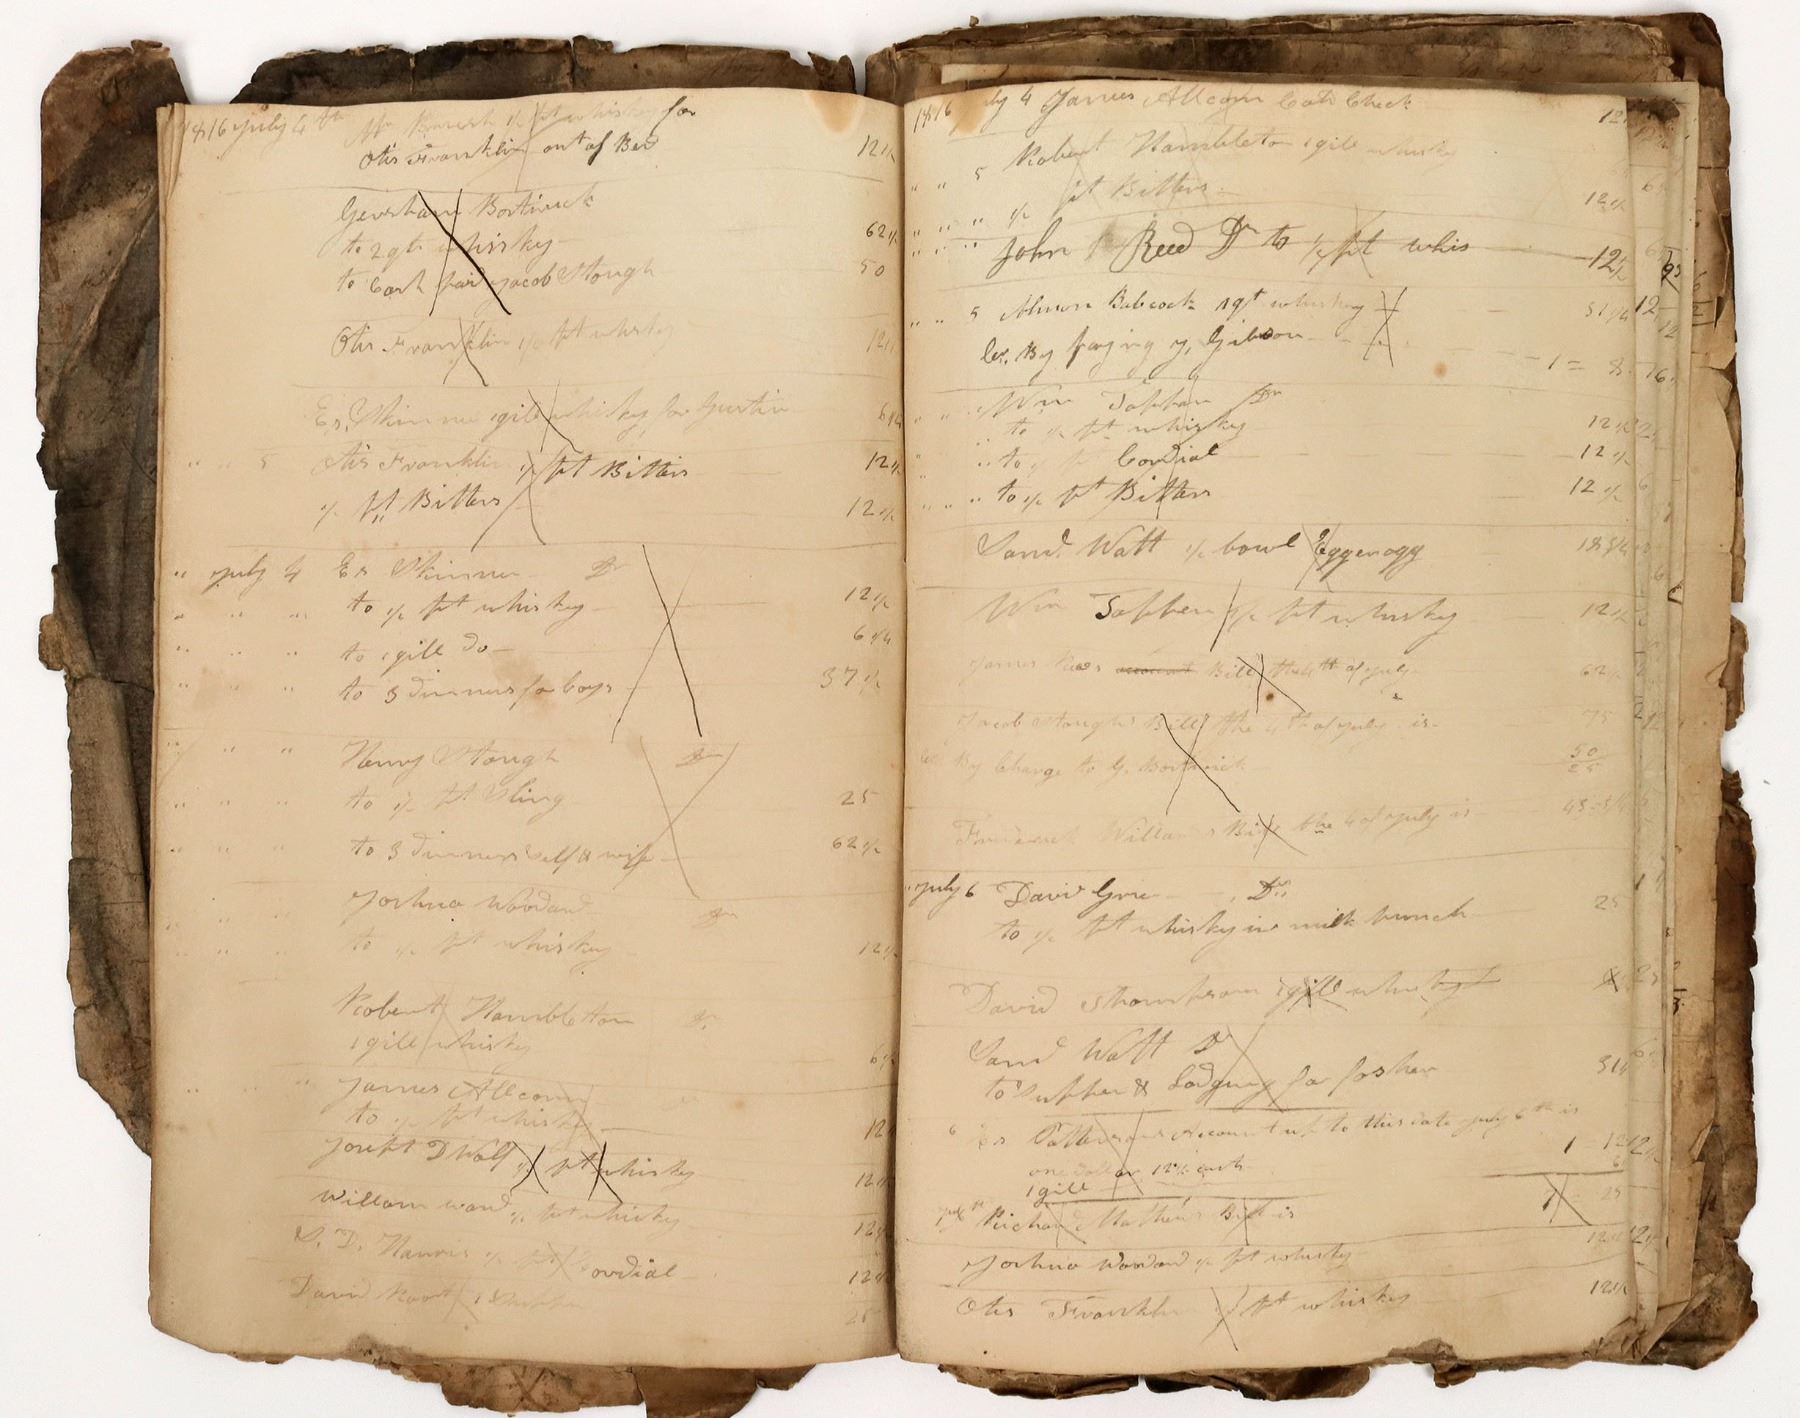 1816 July 4th Mr 1/2 pt whisky for
Otis Franklin out of Bed 12 1/2
Gersham Bostwick
to 2 qts whiskey 62 1/2
to Cash paid Jacob Stough 50
Otis Franklin 1/2 pt whisky 12 1/2
Es. Skinner 1 gill whisky for Justin 6 1/4
" " 5 Otis Franklin 1/2 pt Bitters 12 1/2
1/2 pt Bitters 12 1/2
" July 4 Es Skinner Dr
" " " to 1/2 pt whiskey 12 1/2
" " " to 1 gill do 6 1/4
" " " to 3 dinners for boys 37 1/2
" " " Henry Stough Dr
" " " to 1/2 pt Sling 25
" " " to 3 dinners self & wife 62 1/2
" " " Joshua Woodard Dr
" " " to 1/2 pt whiskey 12 1/2
Robert Hambleton Dr
1 gill whisky 6 1/4
" " " James Allcorn
to 1/2 pt whisky 12
Joseph D Wolf 1/2 pt whisky 12 1/2
Willam ward 1/2 pt whisky 12 1/2
S. D. Harris 1/2 pt Cordial 12 1/2
David Root 1 25
1816 July 4 James Allcorn Check 12
" " 5 Robert Hambleton 1 gill whisky 6
" " " 1/2 pt Bitters 12 1/2
" " " John Reed Dr to 1/2 pt whis 12 1/2
" " 5 Almon Babcock 1 qt whiskey 31 1/4
Cr. By forging y, Gibson 1 = 8
" " Wm Tappan Dr
" to 1/2 pt whiskey 12 1/2
" " to 1/2 pt Cordial 12 1/2
" " " to 1/2 pt Bitters 12 1/2
Saml. Watt 1/2 bowl Eggenogg 18 3/4
Wm Tappen 1/2 pt whisky 12 1/2
James Bill the 4th of July 62 1/2
Jacob Stoughs Bill the 4th of July is 75
Cr. By Charge to G. Bostwick 50
25
Frederick Willams Bill the 4 of July is 43 3/4
" July 6 David Grie Dr.
to 1/2 pt whiskey in milk punch 25
David Thompson 1 gill whiskey
Saml Watt Dr
to Supper & Lodging for 31 1/4
6 Es Pattersons Account up to this date July 6th is
one dollar 12 1/2 cents 1 - 12
1 gill 6
July Richard Mathews Bill is
Joshua Woodard 1/2 pt whisky 12 1/2
Otis Franklin 1/2 pt whiskey 12 1/2